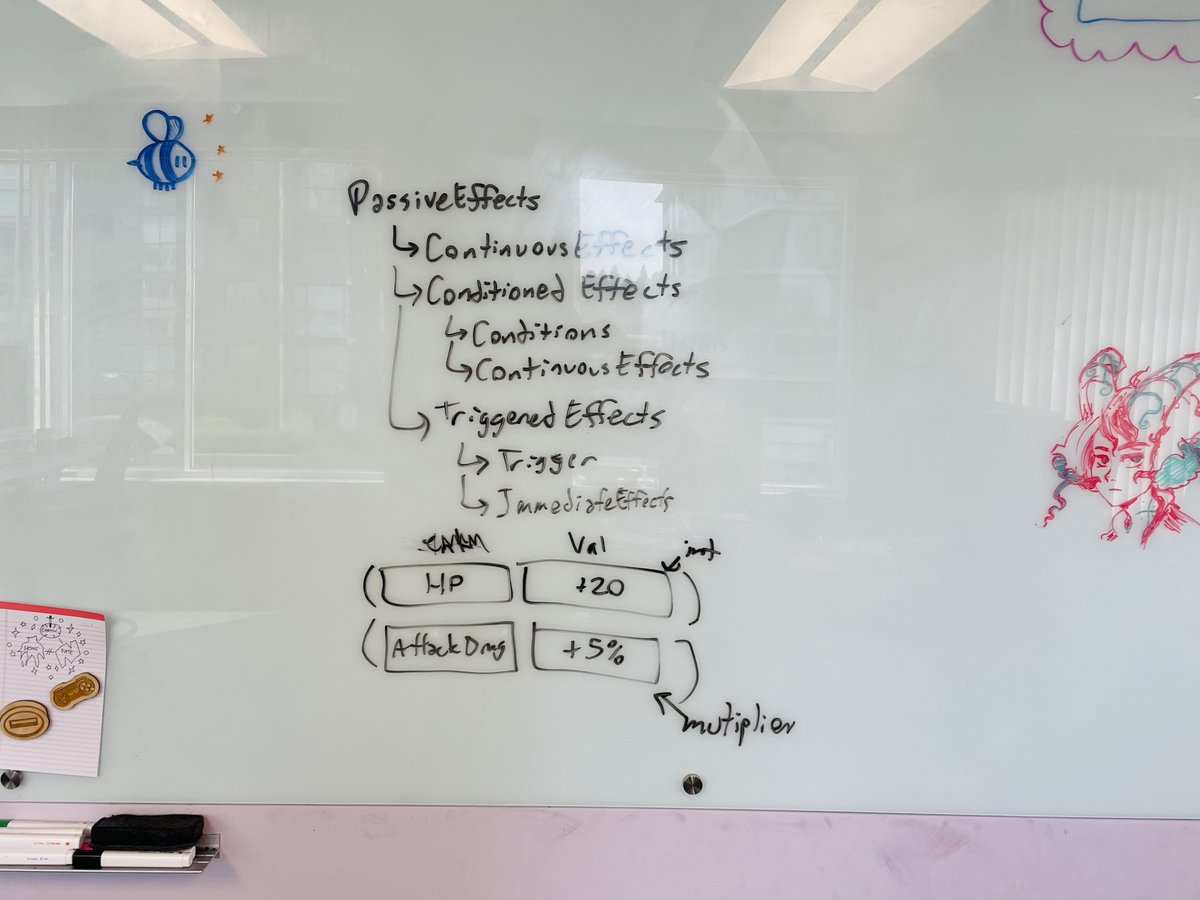 PassiveEffects
↳ContinuousEffects
↳Conditioned Effects
↳Conditions
↳ContinuousEffects
↳TriggenedEffects
↳Trigger
↳ImmediateEffects
Val
(HP +20)
(AttackDmg +5%)
mutiplier